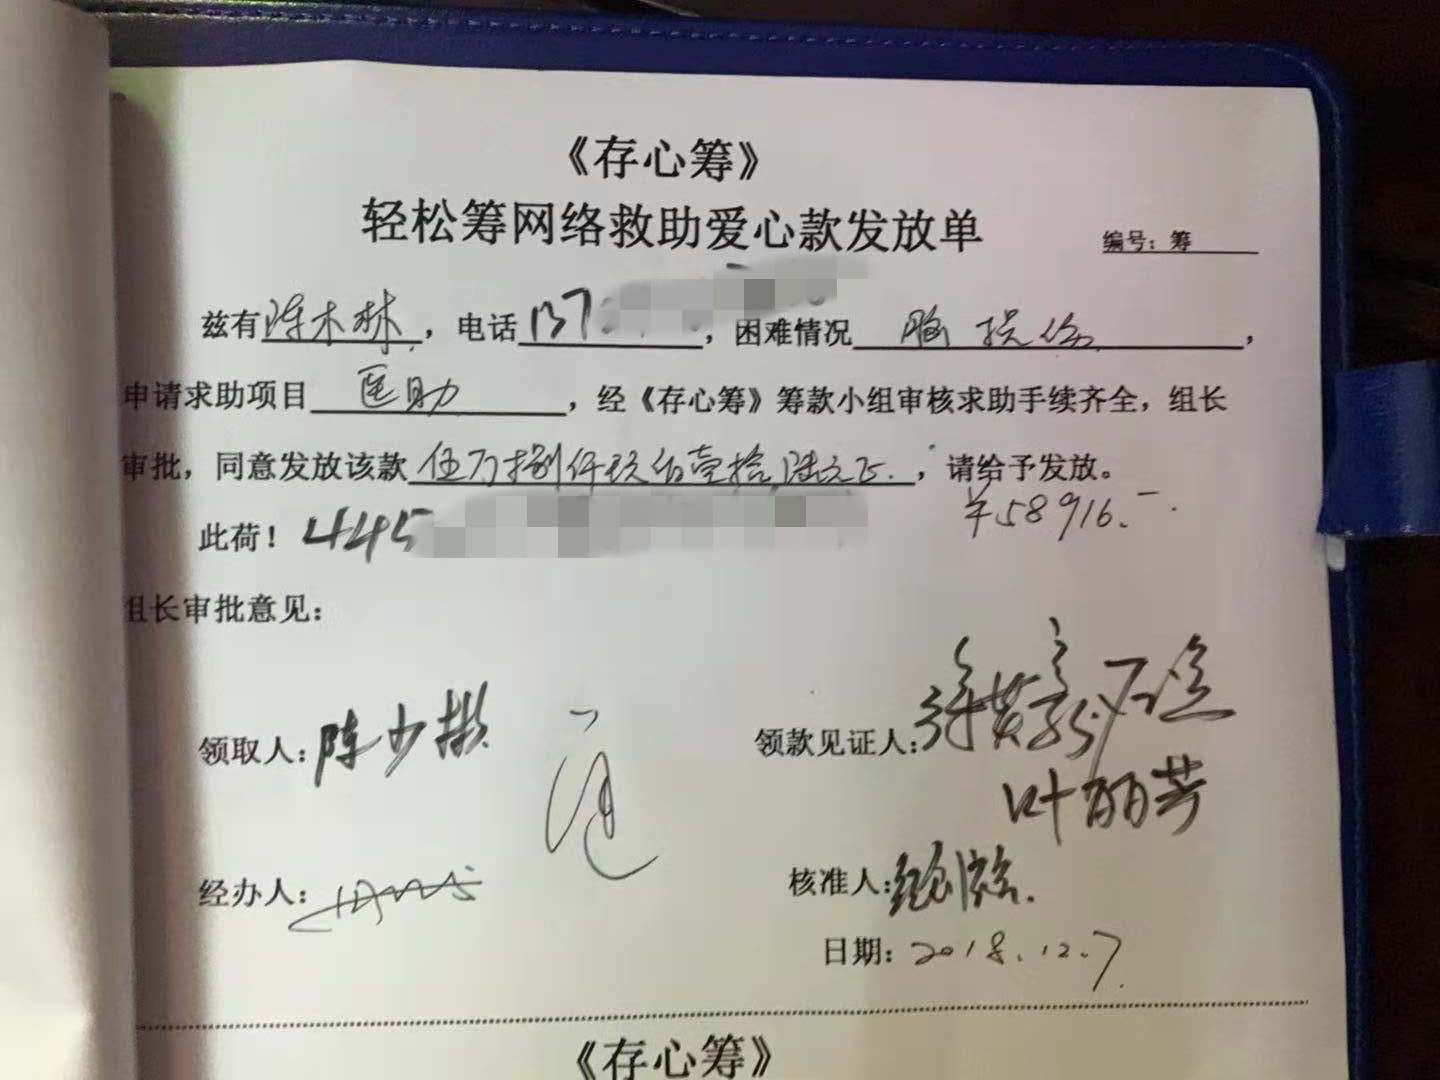 《存心筹》
轻松筹网络救助爱心款发放单
编号：筹
兹有陈木林，电话137，困难情况 脑损伤，
申请求助项目 医助，经《存心筹》筹款小组审核求助手续齐全，组长
审批，同意发放该款伍万捌仟玖佰壹拾陆元正，请给予发放。
¥58916.-
此荷！445
组长审批意见：
领取人：陈少
领款见证人：
叶丽芳
经办人：
核准人：
日期：2018.12.7
《存心筹》